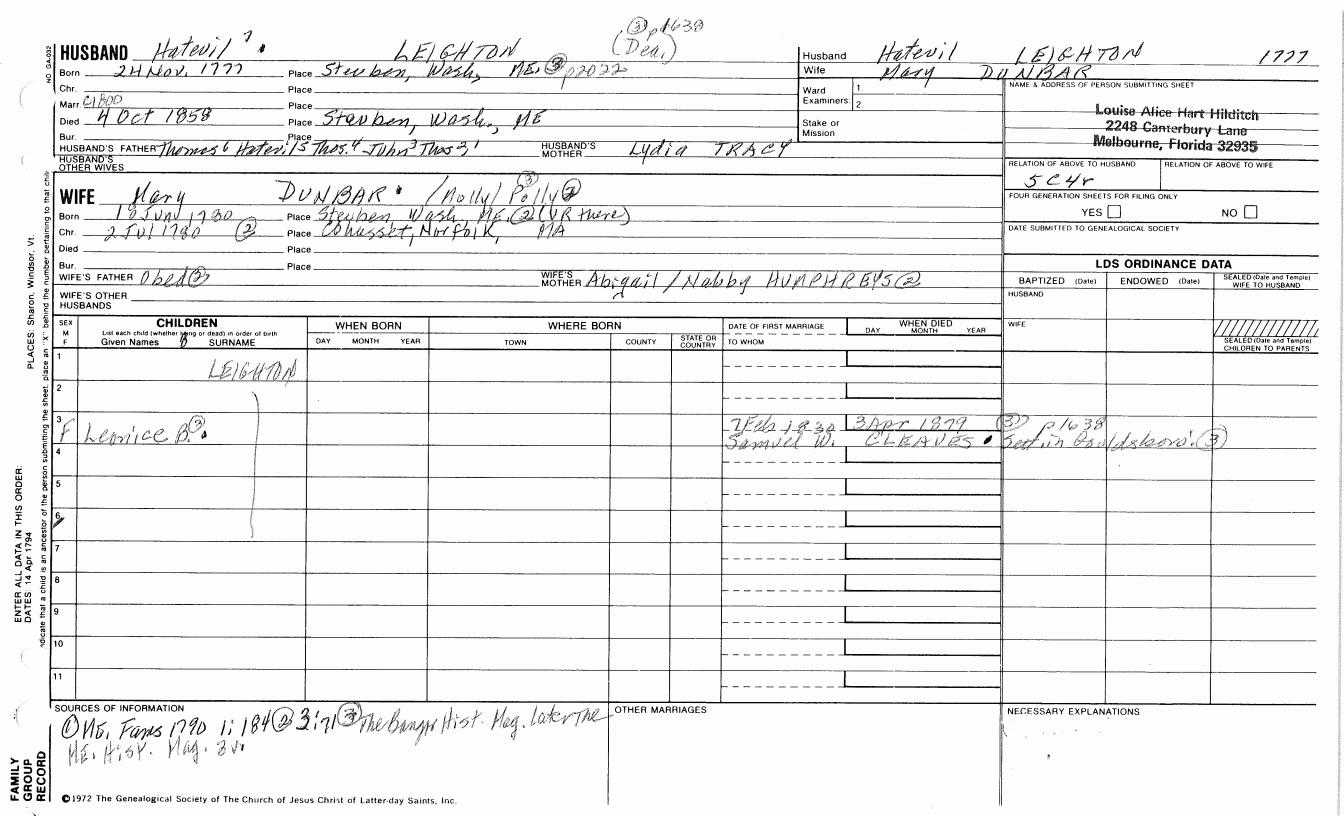 ③ p1638
(Dea.)
NO GA-032
HUSBAND Hatevil 7 LEIGHTON
Born 24 Nov. 1777 Place Steuben, Wash, ME. ③ p2022
Chr. Place
Marr. C1800 Place
Died 4 Oct 1858 Place Steuben, Wash., ME
Bur. Place
HUSBAND'S FATHER Thomas 6 Hatevil 5 Thos. 4 John 3 Thos 1 HUSBAND'S MOTHER Lydia TRACY
HUSBAND'S OTHER WIVES
Husband Hatevil LEIGHTON 1777
Wife Mary DUNBAR
Ward 1
Examiners: 2.
Stake or
Mission
NAME & ADDRESS OF PERSON SUBMITTING SHEET
Louise Alice Hart Hilditch
2248 Canterbury Lane
Melbourne, Florida 32935
RELATION OF ABOVE TO HUSBAND RELATION OF ABOVE TO WIFE
5C4r
FOUR GENERATION SHEETS FOR FILING ONLY
YES NO
DATE SUBMITTED TO GENEALOGICAL SOCIETY
WIFE Mary DUNBAR /Molly/ Polly ②
③
Born Jun 1780 Place Steuben, Wash, ME. ② (VR there)
Chr. 2 Jul 1780 ② Place Cohasset, Norfolk, MA
Died Place
Bur. Place
WIFE'S FATHER Obed ② WIFE'S MOTHER Abigail / Nabby HUMPHREYS ②
WIFE'S OTHER HUSBANDS
LDS ORDINANCE DATA
BAPTIZED (Date) ENDOWED (Date) SEALED (Date and Temple) WIFE TO HUSBAND
HUSBAND
WIFE
SEALED (Date and Temple) CHILDREN TO PARENTS
SEX M F
CHILDREN
List each child (whether living or dead) in order of birth
Given Names SURNAME
WHEN BORN
DAY MONTH YEAR
WHERE BORN
TOWN COUNTY STATE OR COUNTRY
DATE OF FIRST MARRIAGE
TO WHOM
WHEN DIED
DAY MONTH YEAR
1 LEIGHTON
2
3 F Leonice B. ③ 7 Feb 1830 3 Apr 1879 ③ p1638
Samuel W. CLEAVES Sett. in Gouldsboro. ③
4
5
6
7
8
9
10
11
SOURCES OF INFORMATION
① ME. Fams 1790 1:184 ② 3:71 ③ The Bangor Hist. Mag. later The
ME. Hist. Mag. 3v.
OTHER MARRIAGES
NECESSARY EXPLANATIONS
©1972 The Genealogical Society of The Church of Jesus Christ of Latter-day Saints, Inc.
FAMILY
GROUP
RECORD
ENTER ALL DATA IN THIS ORDER:
DATES: 14 Apr 1794
PLACES: Sharon, Windsor, Vt.
indicate that a child is an ancestor of the person submitting the sheet, place an "X" behind the number pertaining to that child